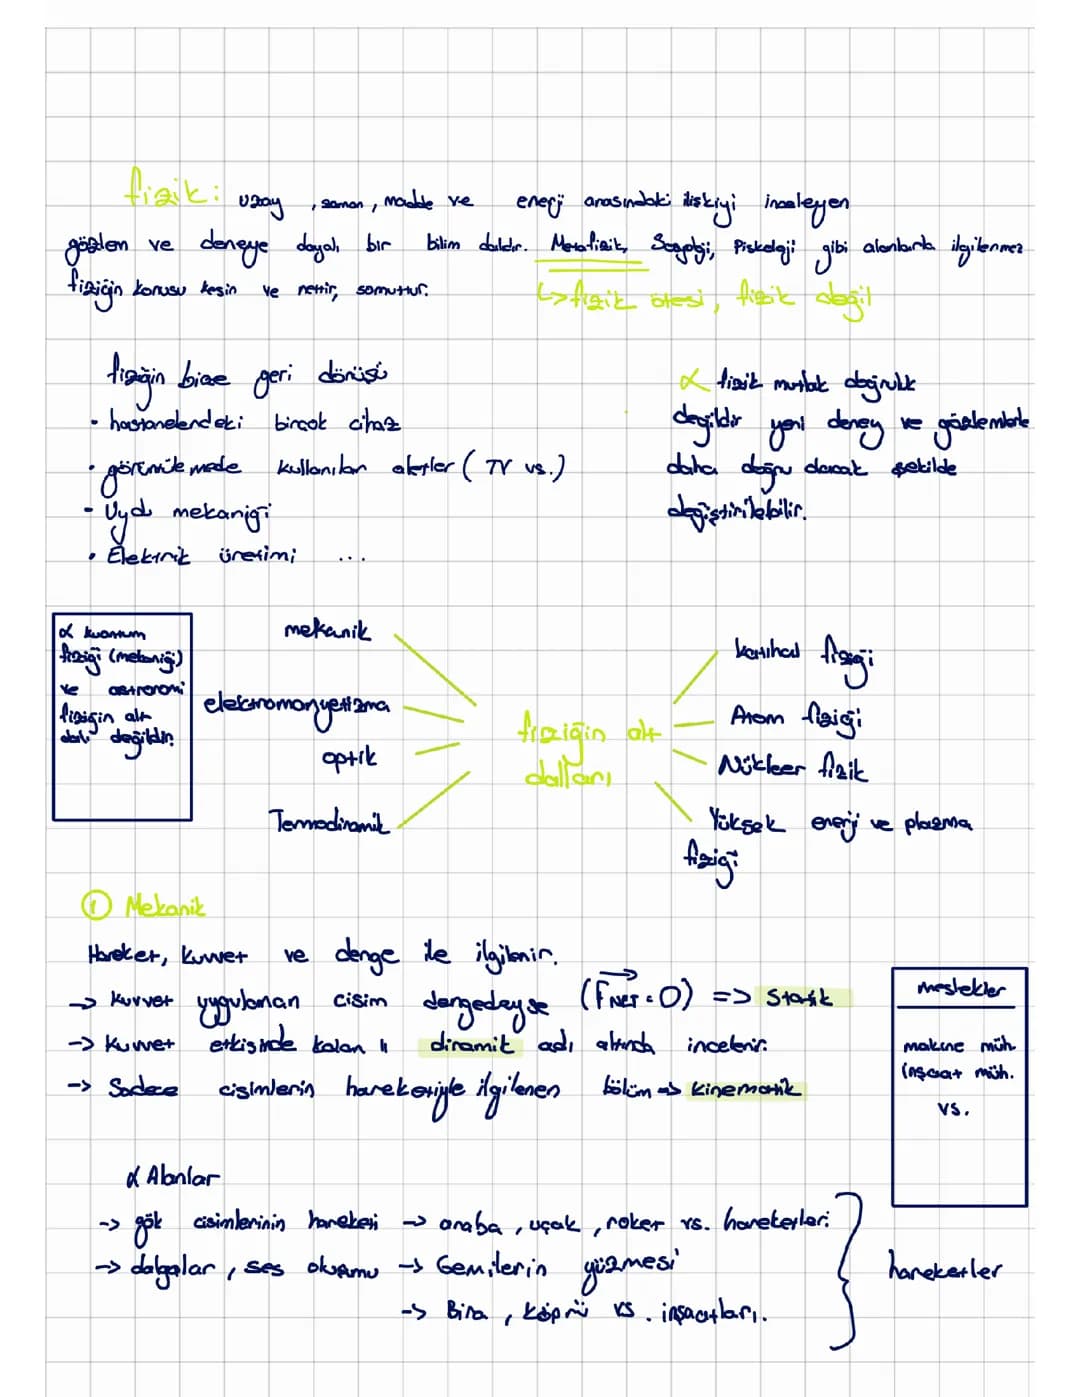 fizik: uzay, zaman, madde ve enerji arasındaki ilişkiyi inceleyen
gözlem ve deneye dayalı bir bilim dalıdır. Metafizik, Sosyoloji, Piskoloji gibi alanlarla ilgilenmez
fiziğin konusu kesin ve nettir, somuttur.
↳ fizik ötesi, fizik değil
fiziğin bize geri dönüşü
• hastanelerdeki birçok cihaz
• görüntülemede kullanılan aletler (TV vs.)
• Uydu mekaniği
• Elektrik üretimi ...
α fizik mutlak doğruluk
değildir yeni deney ve gözlemlerle
daha doğru olacak şekilde
değiştirilebilir.
α kuantum
fiziği (mekaniği)
ve astronomi
fiziğin alt
dalı değildir.
mekanik
elektromanyetizma
optik
Termodinamik
fiziğin alt
dalları
katıhal fiziği
Atom fiziği
Nükleer fizik
Yüksek enerji ve plazma
fiziği
① Mekanik
Hareket, kuvvet ve denge ile ilgilenir.
→ kuvvet uygulanan cisim dengedeyse (F⃗NET = 0) => Statik
→ kuvvet etkisinde kalan " dinamik adı altında incelenir.
→ Sadece cisimlerin hareketiyle ilgilenen bölüm → kinematik
meslekler
makine müh.
inşaat müh.
vs.
α Alanlar
→ gök cisimlerinin hareketi → araba, uçak, roket vs. hareketleri
→ dalgalar, ses oluşumu → Gemilerin yüzmesi
→ Bina, köprü vs. inşaatları.
hareketler